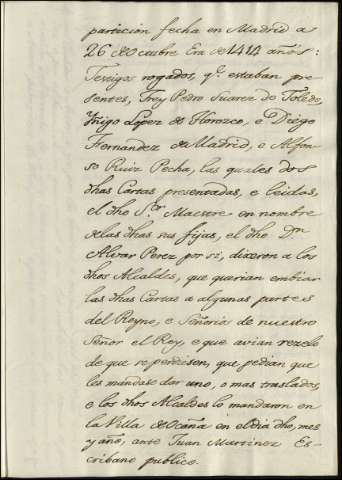 particion fecha en Madrid a
26 de Octubre Era de 1414 años:
Testigos rogados, q.e estaban pre-
sentes, Frey Pedro Suarez de Toledo,
Yñigo Lopez de Horozco, e Diego
Fernandez de Madrid, e Alfon-
so Ruiz Pecha, las quales dos
dhas Cartas presentadas, e leidas,
el dho S.or Maestre en nombre
de las dhas sus fijas, el dho Dn
Alvar Perez por si, dixeron a los
dhos Alcaldes, que querian embiar
las dhas Cartas a algunas partes
del Reyno, e Señoria de nuestro
Señor el Rey, e que avian rezelo
de que se perdiesen, que pedian que
les mandase dar uno, o mas traslados,
e los dhos Alcaldes lo mandaron en
la Villa de Ocaña en el dia dho, mes
y año, ante Juan Martinez Es-
cribano publico.